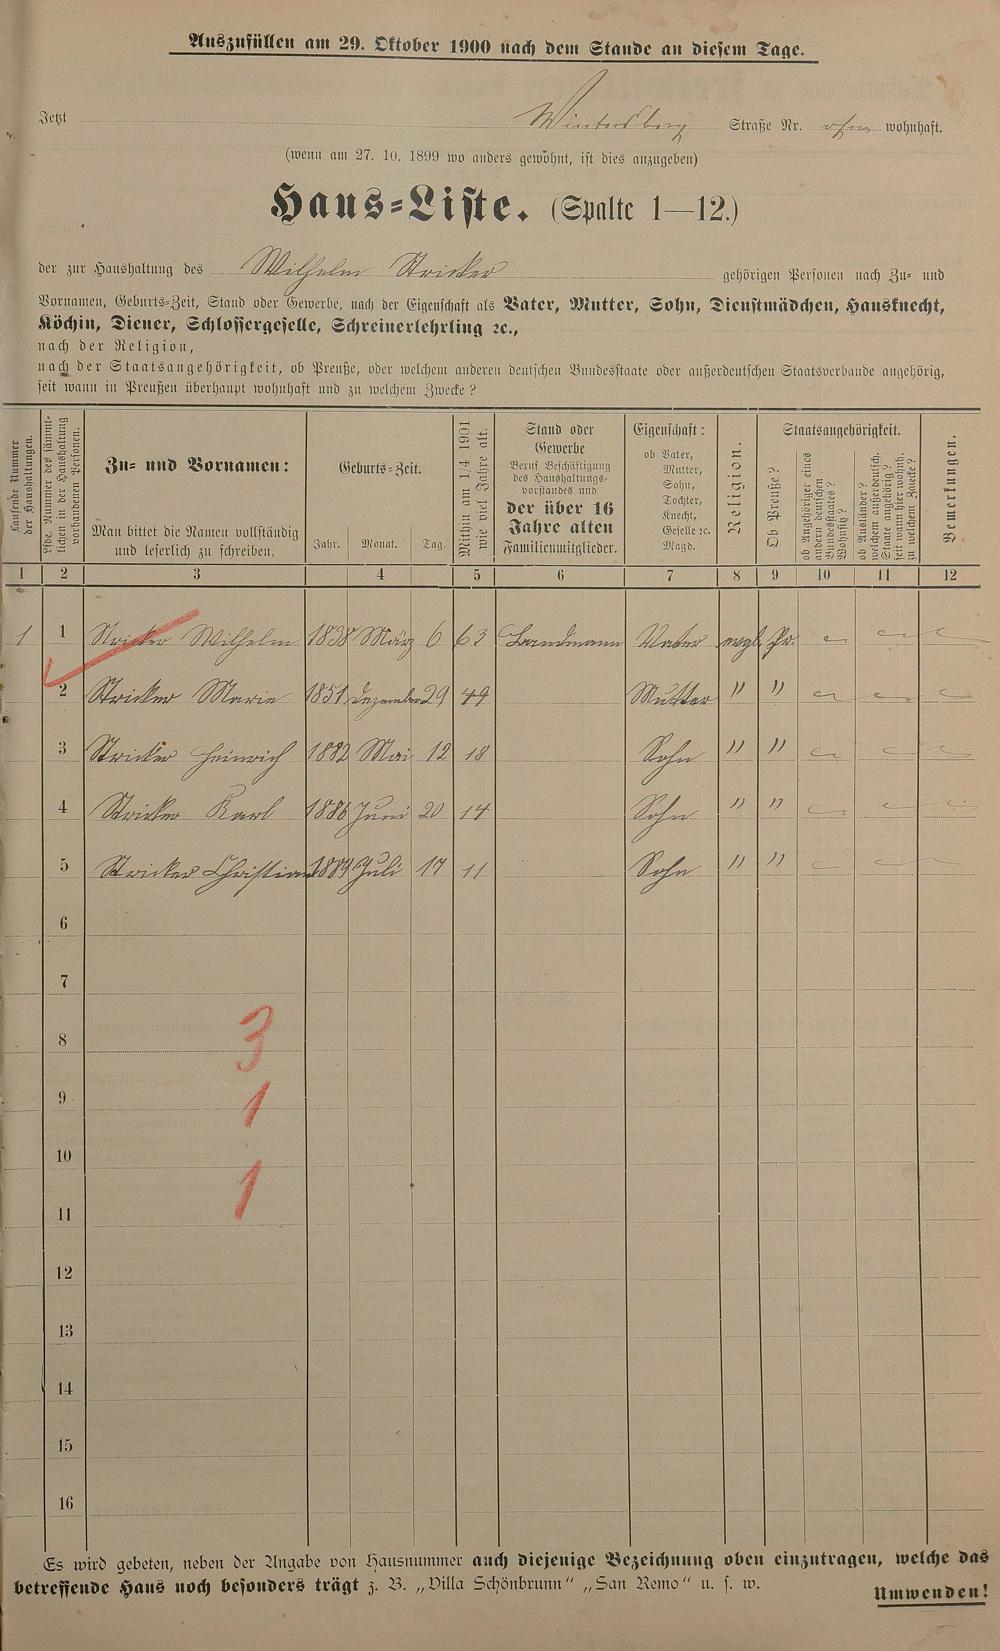 Auszufüllen am 29. Oktober 1900 nach dem Stande an diesem Tage.
Jetzt Wintersberg Straße Nr. ohne wohnhaft.
(wenn am 27. 10. 1899 wo anders gewohnt, ist dies anzugeben)
Haus-Liste. (Spalte 1—12.)
der zur Haushaltung des Wilhelm Stricker gehörigen Personen nach Zu- und
Vornamen, Geburts-Zeit, Stand oder Gewerbe, nach der Eigenschaft als Vater, Mutter, Sohn, Dienstmädchen, Hausknecht,
Köchin, Diener, Schlossergeselle, Schreinerlehrling ꝛc.,
nach der Religion,
nach der Staatsangehörigkeit, ob Preuße, oder welchem anderen deutschen Bundesstaate oder außerdeutschen Staatsverbande angehörig,
seit wann in Preußen überhaupt wohnhaft und zu welchem Zwecke?
Laufende Nummer
der Haushaltungen.
Lfde. Nummer der sämmt-
lichen in der Haushaltung
vorhandenen Personen.
Zu- und Vornamen:
Man bittet die Namen vollständig
und leserlich zu schreiben.
Geburts-Zeit.
Jahr. Monat. Tag.
Mithin am 1/4 1901
wie viel Jahre alt.
Stand oder
Gewerbe
Beruf Beschäftigung
des Haushaltungs-
vorstandes und
der über 16
Jahre alten
Familienmitglieder.
Eigenschaft:
ob Vater,
Mutter,
Sohn,
Tochter,
Knecht,
Geselle ꝛc.
Magd.
Religion.
Staatsangehörigkeit.
Ob Preuße?
ob Angehöriger eines
andern deutschen
Bundesstaates?
Wohnsitz?
ob Ausländer?
welchem außerdeutsch.
Staate angehörig?
seit wann hier wohnh.
zu welchem Zwecke?
Bemerkungen.
1 2 3 4 5 6 7 8 9 10 11 12
1 1 Stricker Wilhelm 1838 März 6 63 Landmann Vater evgl. Pr.
2 Stricker Marie 1851 Dezember 29 49 Mutter " "
3 Stricker Heinrich 1882 Mai 12 18 Sohn " "
4 Stricker Karl 1886 Juni 20 14 Sohn " "
5 Stricker Christian 1889 Juli 17 11 Sohn " "
6
7
8 3
9 1
10
11 1
12
13
14
15
16
Es wird gebeten, neben der Angabe von Hausnummer auch diejenige Bezeichnung oben einzutragen, welche das
betreffende Haus noch besonders trägt z. B. „Villa Schönbrunn" „San Remo" u. s. w.
Umwenden!